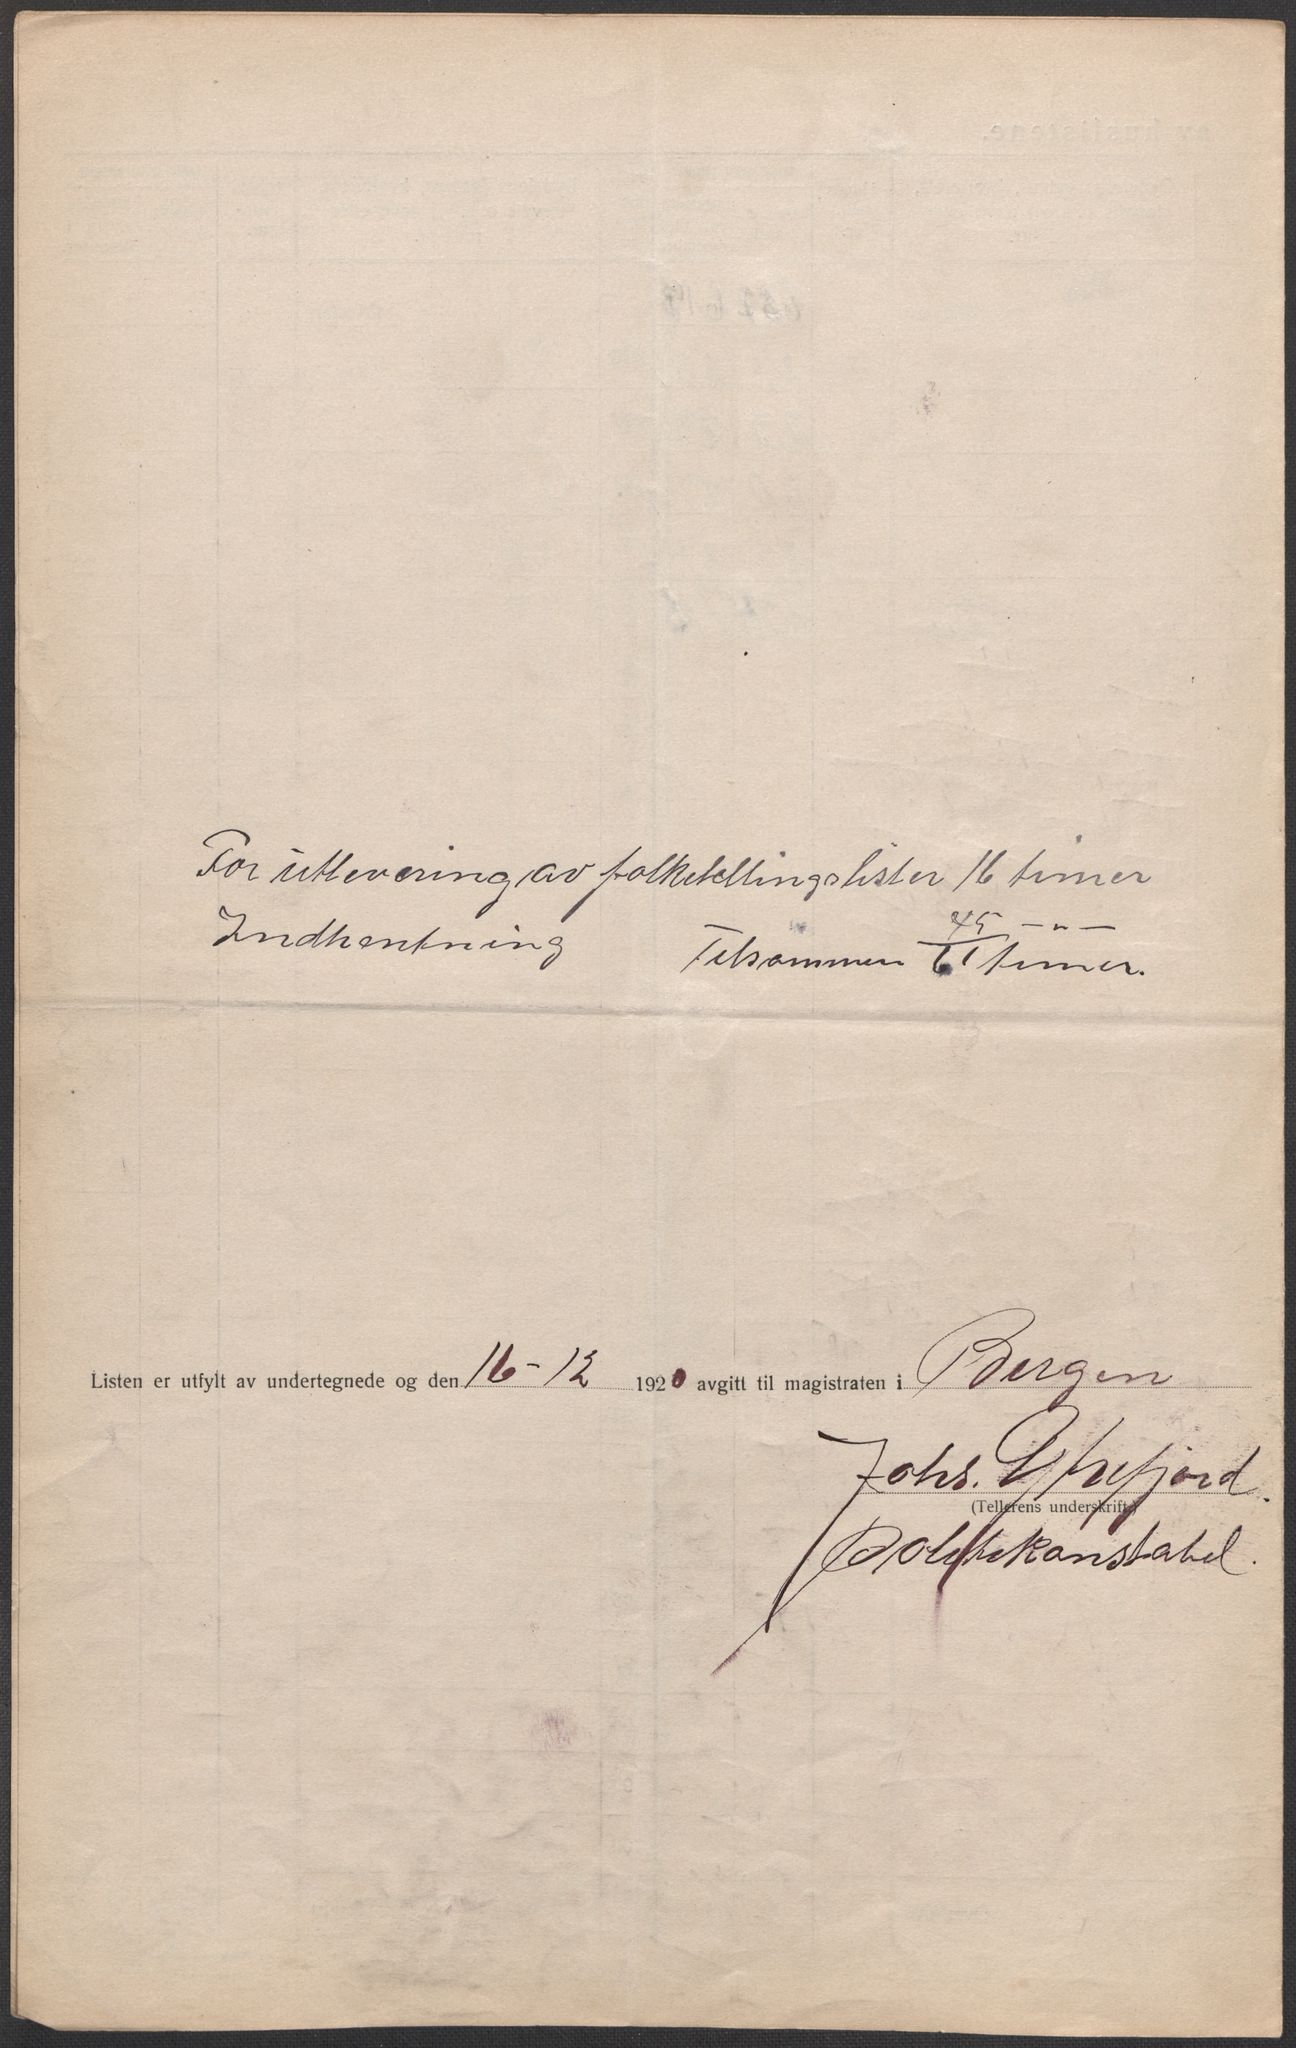 For utlevering av folketellingslister 16 timer
Indhentning 45 -"-
Tilsammen 61 timer.
Listen er utfylt av undertegnede og den 16-12 1920 avgitt til magistraten i Bergen
Johs. Ytrefjord.
(Tellerens underskrift.)
Politikonstabel.